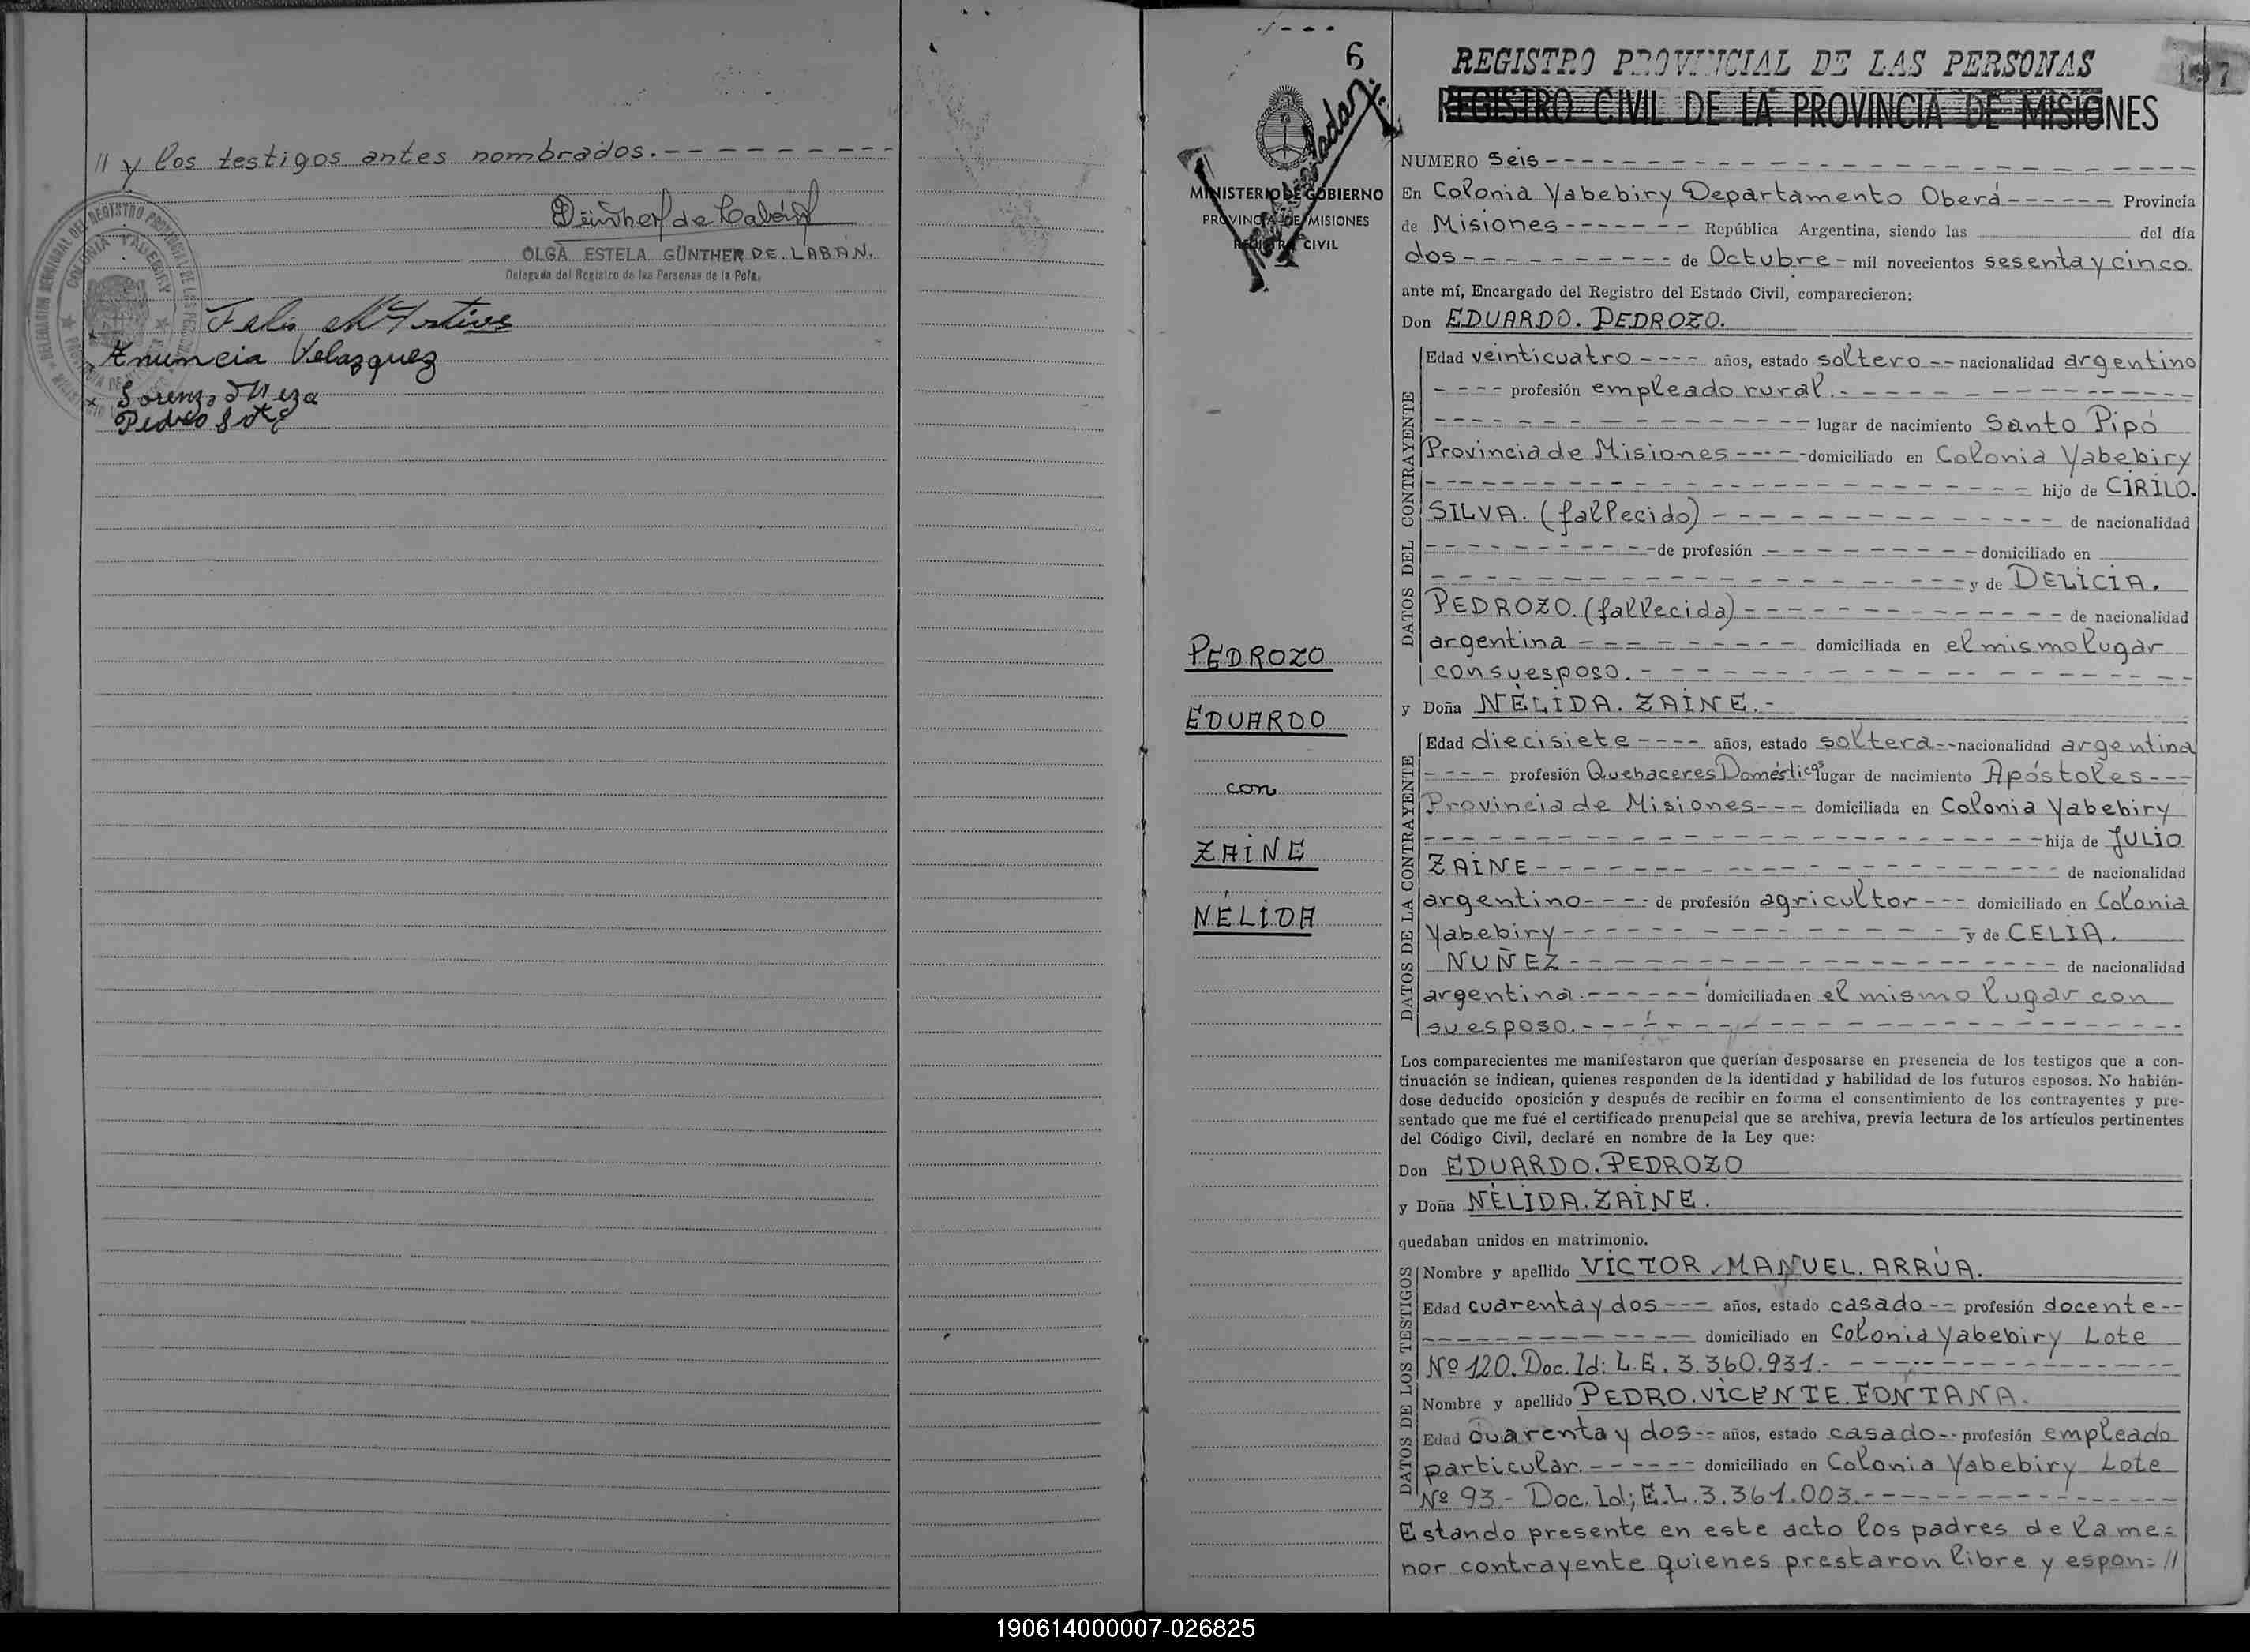 // y los testigos antes nombrados.- - - - - - - - - -
OLGA ESTELA GÜNTHER DE LABÁN.
Delegada del Registro de las Personas de la Pcia.
Anuncia Velazquez
Lorenzo Meza
Pedro
6
MINISTERIO DE GOBIERNO
PROVINCIA DE MISIONES
REGISTRO CIVIL
PEDROZO
EDUARDO
con
ZAINE
NÉLIDA
REGISTRO PROVINCIAL DE LAS PERSONAS
REGISTRO CIVIL DE LA PROVINCIA DE MISIONES
NUMERO Seis
En Colonia Yabebiry Departamento Oberá - - - - - - Provincia
de Misiones - - - - - - - República Argentina, siendo las del día
dos - - - - - - - - - - de Octubre - mil novecientos sesenta y cinco
ante mí, Encargado del Registro del Estado Civil, comparecieron:
Don EDUARDO. PEDROZO.
DATOS DEL CONTRAYENTE
Edad veinticuatro - - - - años, estado soltero - - nacionalidad argentino
- - - - profesión empleado rural. - - - - - - -
- - - - - - - - - - lugar de nacimiento Santo Pipó
Provincia de Misiones - - - - - domiciliado en Colonia Yabebiry
- - - - - - - - - - hijo de CIRILO.
SILVA. (fallecido) - - - - - - - - - - de nacionalidad
- - - - - - - - - - de profesión - - - - - - - - - domiciliado en
- - - - - - - - - - y de DELICIA.
PEDROZO. (fallecida) - - - - - - - - - - de nacionalidad
argentina - - - - - - - - - - domiciliada en el mismo lugar
con su esposo. - - - - - - - - - -
y Doña NÉLIDA. ZAINE. -
DATOS DE LA CONTRAYENTE
Edad diecisiete - - - - años, estado soltera - - nacionalidad argentina
- - - - profesión Quehaceres Domésticos lugar de nacimiento Apóstoles - - -
Provincia de Misiones - - - domiciliada en Colonia Yabebiry
- - - - - - - - - - hija de JULIO
ZAINE - - - - - - - - - - de nacionalidad
argentino - - - - de profesión agricultor - - - domiciliado en Colonia
Yabebiry - - - - - - - - - - y de CELIA.
NUÑEZ - - - - - - - - - - de nacionalidad
argentina. - - - - - - domiciliada en el mismo lugar con
su esposo. - - - - - - - - - -
Los comparecientes me manifestaron que querían desposarse en presencia de los testigos que a con-
tinuación se indican, quienes responden de la identidad y habilidad de los futuros esposos. No habién-
dose deducido oposición y después de recibir en forma el consentimiento de los contrayentes y pre-
sentado que me fué el certificado prenupcial que se archiva, previa lectura de los artículos pertinentes
del Código Civil, declaré en nombre de la Ley que:
Don EDUARDO. PEDROZO
y Doña NÉLIDA. ZAINE.
quedaban unidos en matrimonio.
DATOS DE LOS TESTIGOS
Nombre y apellido VICTOR MANUEL. ARRÚA.
Edad cuarenta y dos - - - años, estado casado - - profesión docente - -
- - - - - - - - - - domiciliado en Colonia Yabebiry Lote
Nº 120. Doc. Id: L.E. 3.360.931. - - - - - - - - - -
Nombre y apellido PEDRO. VICENTE. FONTANA.
Edad cuarenta y dos - - años, estado casado - - profesión empleado
particular. - - - - - - domiciliado en Colonia Yabebiry Lote
Nº 93 - Doc. Id; E.L. 3.361.003. - - - - - - - - - -
Estando presente en este acto los padres de la me=
nor contrayente quienes prestaron libre y espon= //
190614000007-026825